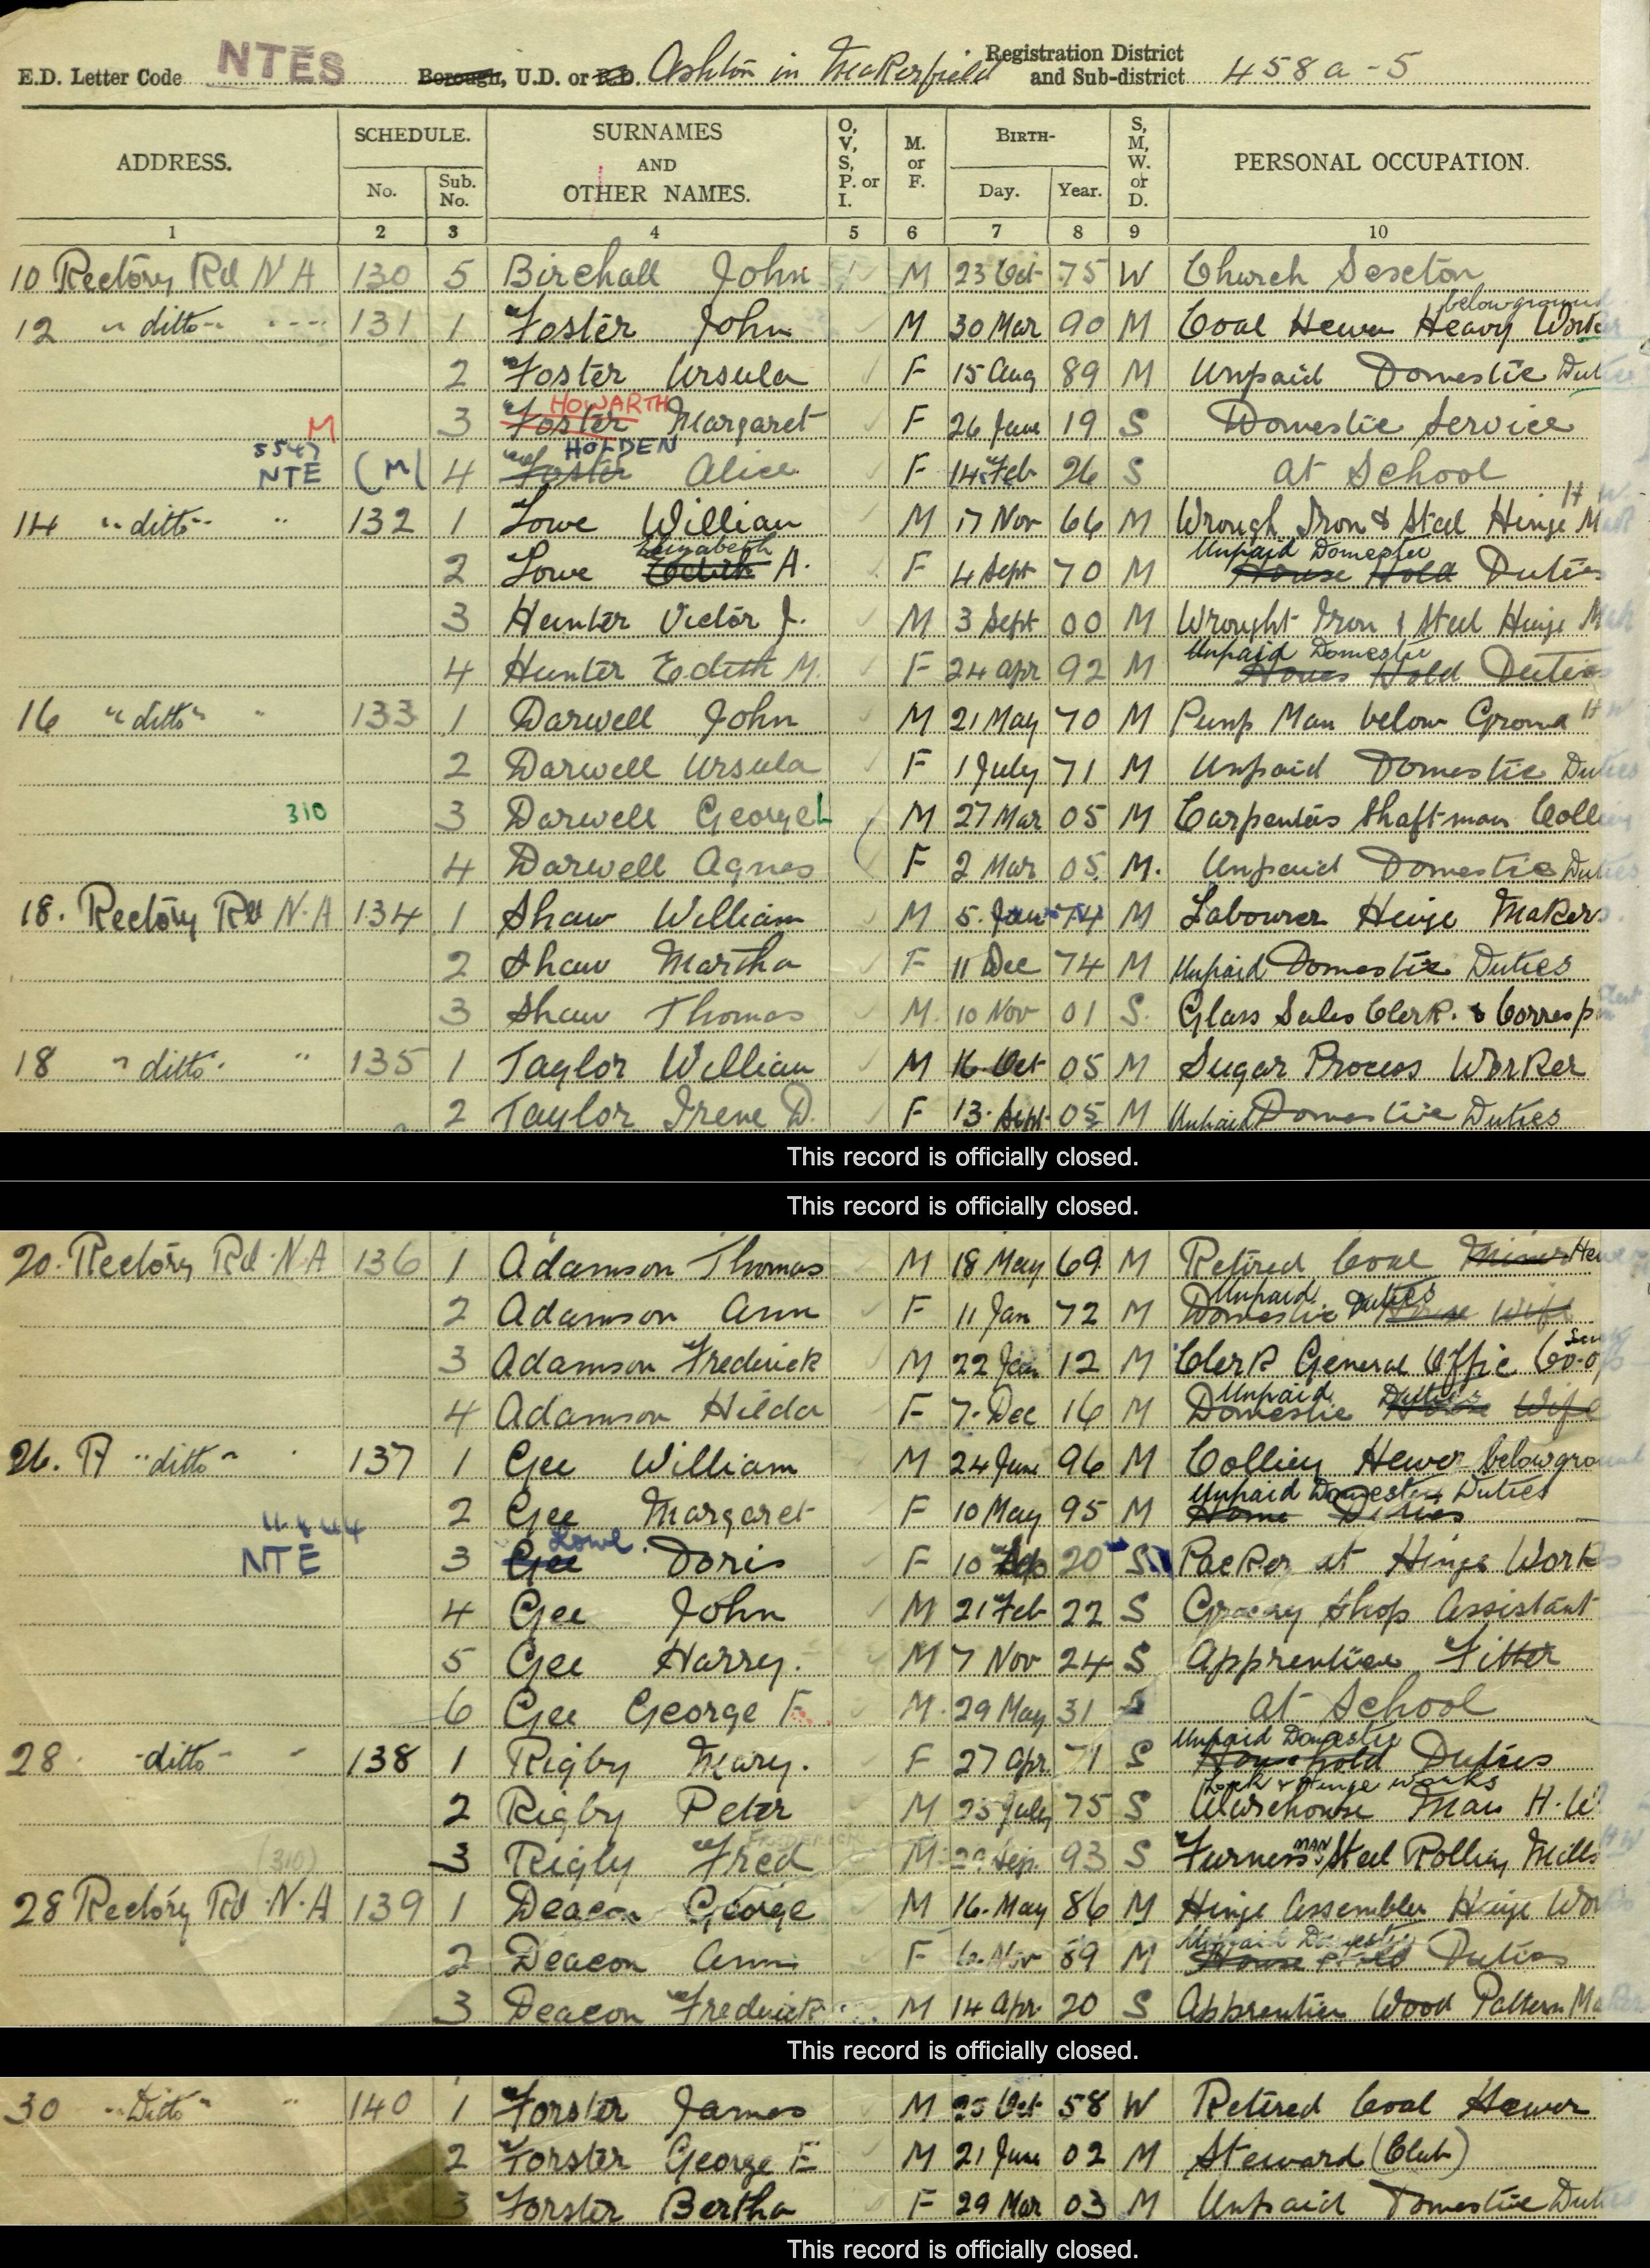 E.D. Letter Code NTES Borough, U.D. or R.D. Ashton in Makerfield Registration District and Sub-district 458a-5
ADDRESS. SCHEDULE. No. Sub. No. SURNAMES AND OTHER NAMES. O, V, S, P. or I. M. or F. BIRTH- Day. Year. S, M, W. or D. PERSONAL OCCUPATION.
1 2 3 4 5 6 7 8 9 10
10 Rectory Rd N A 130 5 Birchall John M 23 Oct 75 W Church Sexton
below ground
12 " ditto " 131 1 Foster John M 30 Mar 90 M Coal Hewer Heavy Work
2 Foster Ursula F 15 Aug 89 M Unpaid Domestic Duties
HOWARTH
M 3 Foster Margaret F 26 June 19 S Domestic Service
HOLDEN
NTE (M( 4 Foster Alice F 14 Feb 26 S at School
14 " ditto " " 132 1 Lowe William M 17 Nov 66 M Wrough Iron & Steel Hinge
Elizabeth Unpaid Domestic
2 Lowe Edith A. F 4 Sept 70 M House Hold Duties
3 Hunter Victor J. M 3 Sept 00 M Wrought Iron & Steel Hinge
Unpaid Domestic
4 Hunter Edith M. F 24 Apr 92 M House Hold Duties
16 " ditto " " 133 1 Darwell John M 21 May 70 M Pump Man below Ground H W
2 Darwell Ursula F 1 July 71 M Unpaid Domestic Duties
310 3 Darwell George L M 27 Mar 05 M Carpenters Shaftman
4 Darwell Agnes F 2 Mar 05 M. Unpaid Domestic Duties
18. Rectory Rd N.A 134 1 Shaw William M 5 Jan 74 M Labourer Hinge Makers
2 Shaw Martha F 11 Dec 74 M Unpaid Domestic Duties
3 Shaw Thomas M. 10 Nov 01 S. Glass Sales Clerk. &
18 " ditto " " 135 1 Taylor William M 16 Oct 05 M Sugar Process Worker
2 Taylor Irene D. F 13 Sept 05 M Unpaid Domestic Duties
This record is officially closed.
This record is officially closed.
20. Rectory Rd. N.A 136 1 Adamson Thomas M 18 May 69 M Retired Coal Miner
Unpaid Duties
2 Adamson Ann F 11 Jan 72 M Domestic House Wife
3 Adamson Frederick M 22 Jan 12 M Clerk General Offic Co-op
Unpaid Duties
4 Adamson Hilda F 7. Dec 16 M Domestic House Wife
26. " ditto " 137 1 Gee William M 24 June 96 M Colliery Hewer below ground
Unpaid Domestic Duties
2 Gee Margaret F 10 May 95 M Home Duties
Lowe.
NTE 3 Gee Doris F 10 Sep 20 S Packer at Hinge Works
4 Gee John M 21 Feb 22 S Grocery Shop Assistant
5 Gee Harry. M 7 Nov 24 S Apprentice Fitter
6 Gee George F. M. 29 May 31 S at School
Unpaid Domestic
28 ditto " 138 1 Rigby Mary. F 27 Apr. 71 S Household Duties
Lock & Hinge works
2 Rigby Peter M 25 July 75 S Warehouse Man H.W
FREDERICK MAN
(310) 3 Rigby Fred M 29 Sep. 93 S Furness Steel Rolling Mills
28 Rectory Rd. N.A 139 1 Deacon George M 16. May 86 M Hinge Assembler Hinge Works
Unpaid Domestic
2 Deacon Ann F 6. Nov 89 M House Hold Duties
3 Deacon Frederick M 14 Apr. 20 S Apprentice Wood Pattern Maker
This record is officially closed.
30 " Ditto " " 140 1 Forster James M 25 Oct 58 W Retired Coal Hewer
2 Forster George E M 21 June 02 M Steward (Club)
3 Forster Bertha F 29 Mar 03 M Unpaid Domestic Duties
This record is officially closed.